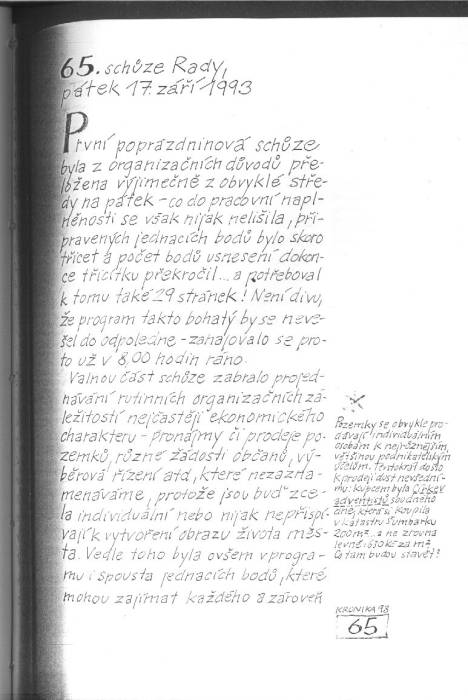 65. schůze Rady,
pátek 17. září 1993
První poprázdninová schůze
byla z organizačních důvodů pře-
ložena výjimečně z obvyklé stře-
dy na pátek - co do pracovní napl-
něnosti se však nijak nelišila, při-
pravených jednacích bodů bylo skoro
třicet a počet bodů usnesení dokon-
ce třicítku překročil... a potřeboval
k tomu také 29 stránek! Není divu,
že program takto bohatý by se neve-
šel do odpoledne - zahajovalo se pro-
to už v 8,00 hodin ráno.
Valnou část schůze zabralo projed-
návání rutinních organizačních zá-
ležitostí nejčastěji ekonomického
charakteru - pronájmy či prodeje po-
zemků, různé žádosti občanů, vý-
běrová řízení atd., které nezazna-
menáváme, protože jsou buď zce-
la individuální nebo nijak nepřispí-
vají k vytvoření obrazu života měs-
ta. Vedle toho byla ovšem v progra-
mu i spousta jednacích bodů, které
mohou zajímat každého a zároveň
Pozemky se obvykle pro-
dávají individuálním
osobám k nejrůznějším,
většinou podnikatelským
účelům. Tentokrát došlo
k prodeji dost nevšední-
mu: kupcem byla Církev
adventistů soudného
dne, která si koupila
v katastru Šumbarku
200 m²... a ne zrovna
levně: 630 Kč za m².
Co tam budou stavět?
KRONIKA 98
65